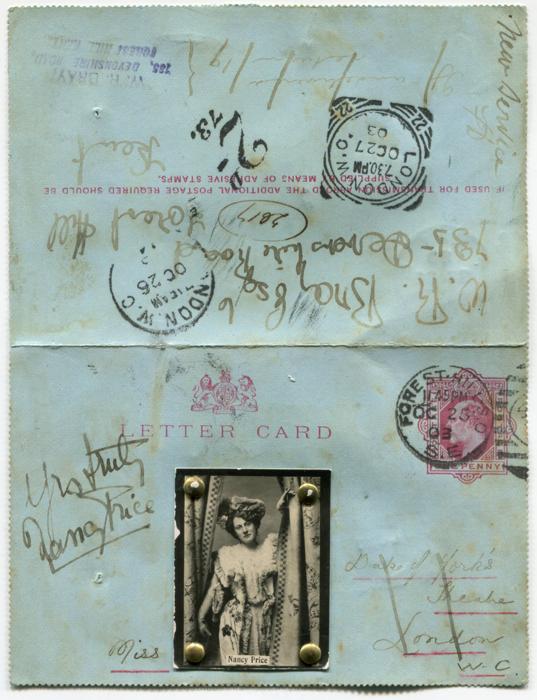 W. R. BRAY
135, DEVONSHIRE ROAD,
FOREST HILL
New Service
LONDON
OC 27
03
7.30.PM
22
22
73.
2
IF USED FOR TRANSMISSION ABROAD THE ADDITIONAL POSTAGE REQUIRED SHOULD BE
SUPPLIED BY MEANS OF ADHESIVE STAMPS.
W. R. Bray Esq
135 Devonshire Road
Forest Hill
Kent
LONDON. W.C
OC 26
LETTER CARD
FOREST-HILL
11.45PM
OC 25
03
S.E
PENNY
Yrs truly
Nancy Price
Miss
Nancy Price
Duke of York's
Theatre
London
W.C.